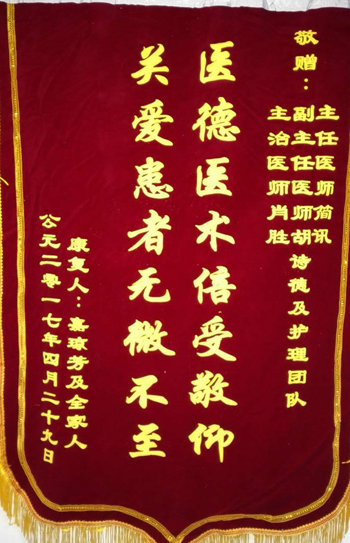 敬赠：
主任医师简讯
副主任医师胡诗德及护理团队
主治医师肖胜
医德医术倍受敬仰
关爱患者无微不至
康复人：嘉琼芳及全家人
公元二零一七年四月二十九日